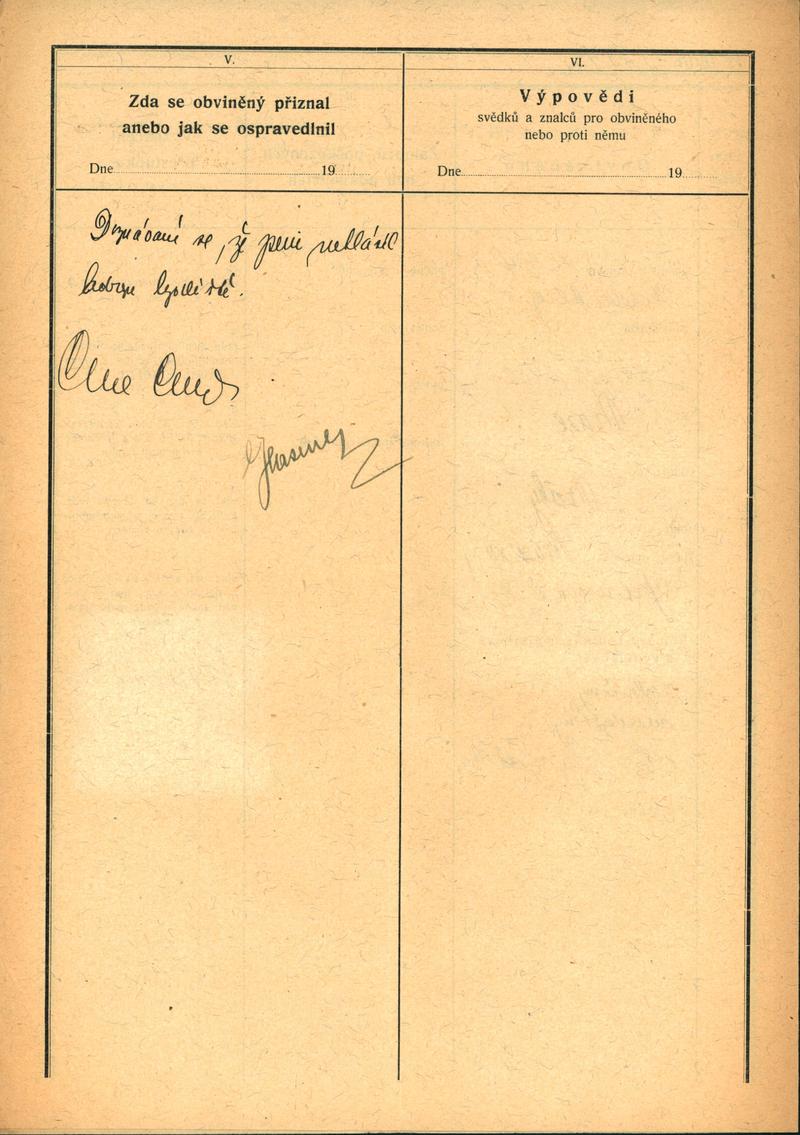 V.
Zda se obviněný přiznal
anebo jak se ospravedlnil
Dne 19
VI.
Výpovědi
svědků a znalců pro obviněného
nebo proti němu
Dne 19
se, že jsem nehlásil